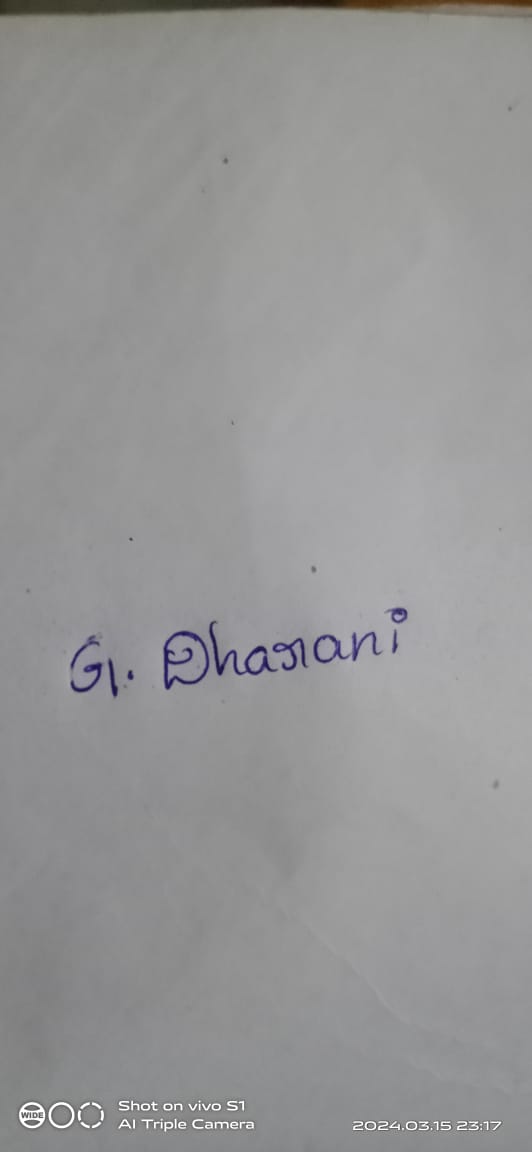 G. Dharani
WIDE
Shot on vivo S1
AI Triple Camera
2024.03.15 23:17